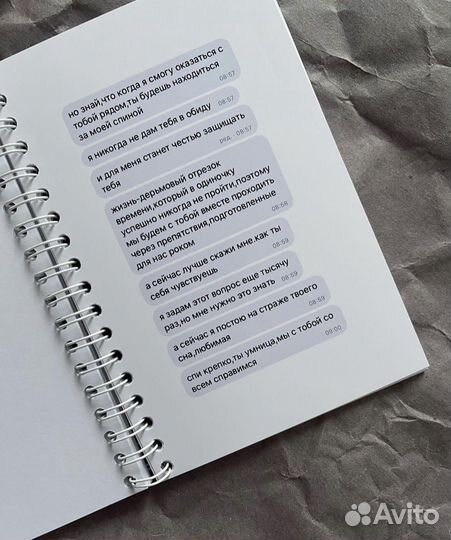 но знай,что когда я смогу оказаться с
тобой рядом,ты будешь находиться
за моей спиной 08:57
я никогда не дам тебя в обиду 08:57
и для меня станет честью защищать
тебя ред. 08:57
жизнь-дерьмовый отрезок
времени,который в одиночку
успешно никогда не пройти,поэтому
мы будем с тобой вместе проходить
через препятствия,подготовленные
для нас роком 08:58
а сейчас лучше скажи мне.как ты
себя чувствуешь 08:59
я задам этот вопрос еще тысячу
раз,но мне нужно это знать 08:59
а сейчас я постою на страже твоего
сна,любимая 08:59
спи крепко,ты умница,мы с тобой со
всем справимся 09:00
Avito